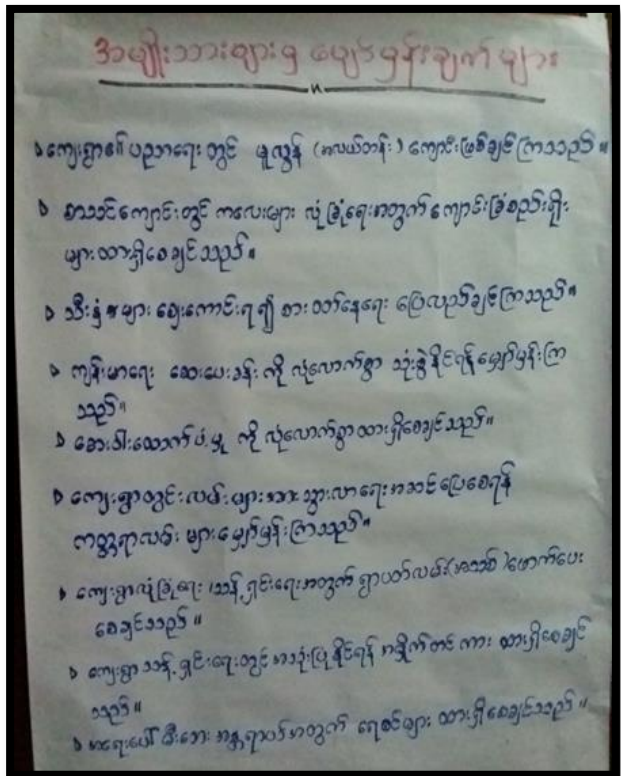 အမျိုးသားများ၏ မျှော်မှန်းချက်များ
ကျေးရွာ၏ ပညာရေးတွင် မူလွန် (အလယ်တန်း) ကျောင်းဖြစ်ချင်ကြသည်။
စာသင်ကျောင်းတွင် ကလေးများ လုံခြုံရေးအတွက် ကျောင်းခြံစည်းရိုး
များထားရှိစေချင်သည်။
သီးနှံများ ဈေးကောင်းရ၍ စားဝတ်နေရေး ပြေလည်ချင်ကြသည်။
ကျန်းမာရေး ဆေးပေးခန်း ကို လုံလောက်စွာ သုံးစွဲနိုင်ရန် မျှော်မှန်းကြ
သည်။
ဆေးဝါးထောက်ပံ့မှု ကို လုံလောက်စွာထားရှိစေချင်သည်။
ကျေးရွာတွင်းလမ်းများအား သွားလာရေးအဆင်ပြေစေရန်
ကတ္တရာလမ်း များမျှော်မှန်းကြသည်။
ကျေးရွာလုံခြုံရေး၊ သန့်ရှင်းရေးအတွက် ရွာပတ်လမ်း(အသစ်)ဖောက်ပေး
စေချင်သည်။
ကျေးရွာ သန့်ရှင်းရေးတွင် အသုံးပြုနိုင်ရန် အမှိုက်တင် ကား ထားရှိစေချင်
သည်။
အရေးပေါ် မီးဘေး အန္တရာယ်အတွက် ရေစင်များ ထားရှိစေချင်သည်။